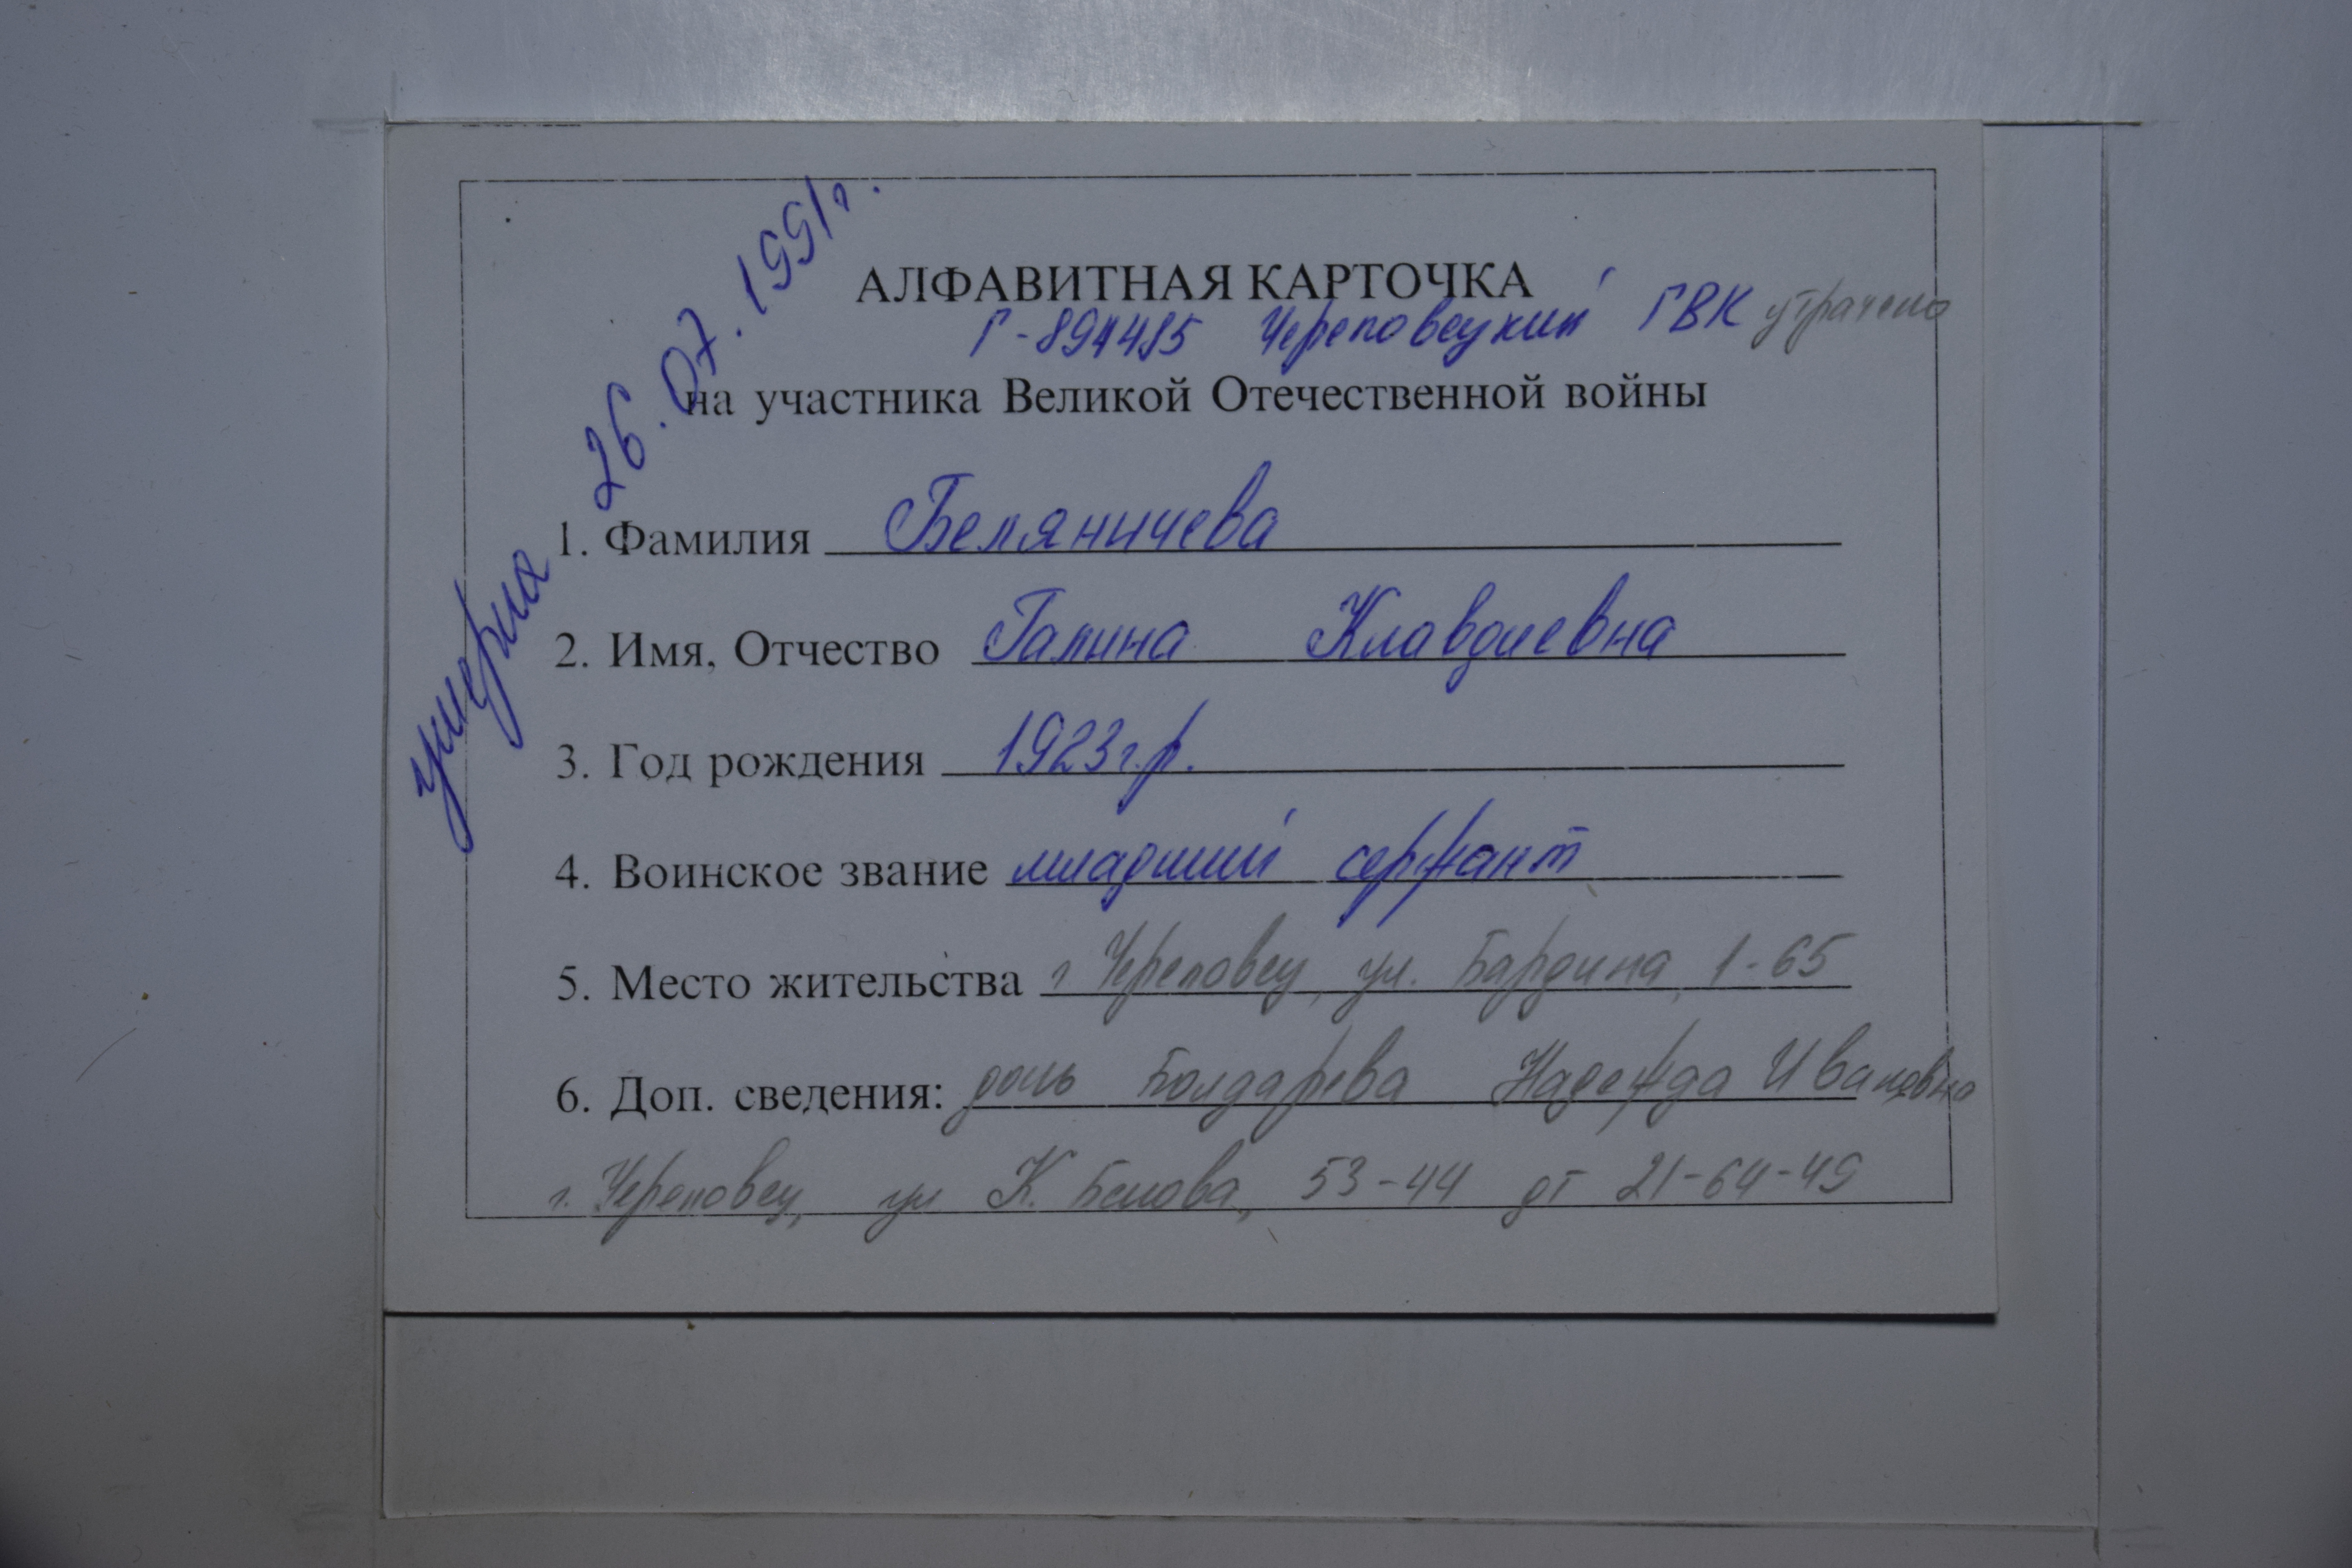 АЛФАВИТНАЯ КАРТОЧКА
Г-894485 Череповецкий ГВК утрачено
на участника Великой Отечественной войны
умерла 26.07.1991г.
1. Фамилия Беляничева
2. Имя, Отчество Галина Клавдиевна
3. Год рождения 1923г.р.
4. Воинское звание младший сержант
5. Место жительства г Череповец, ул. Бардина, 1-65
6. Доп. сведения: дочь Болдарева Надежда Ивановна
г. Череповец, ул К. Белова, 53-44 дт 21-64-49